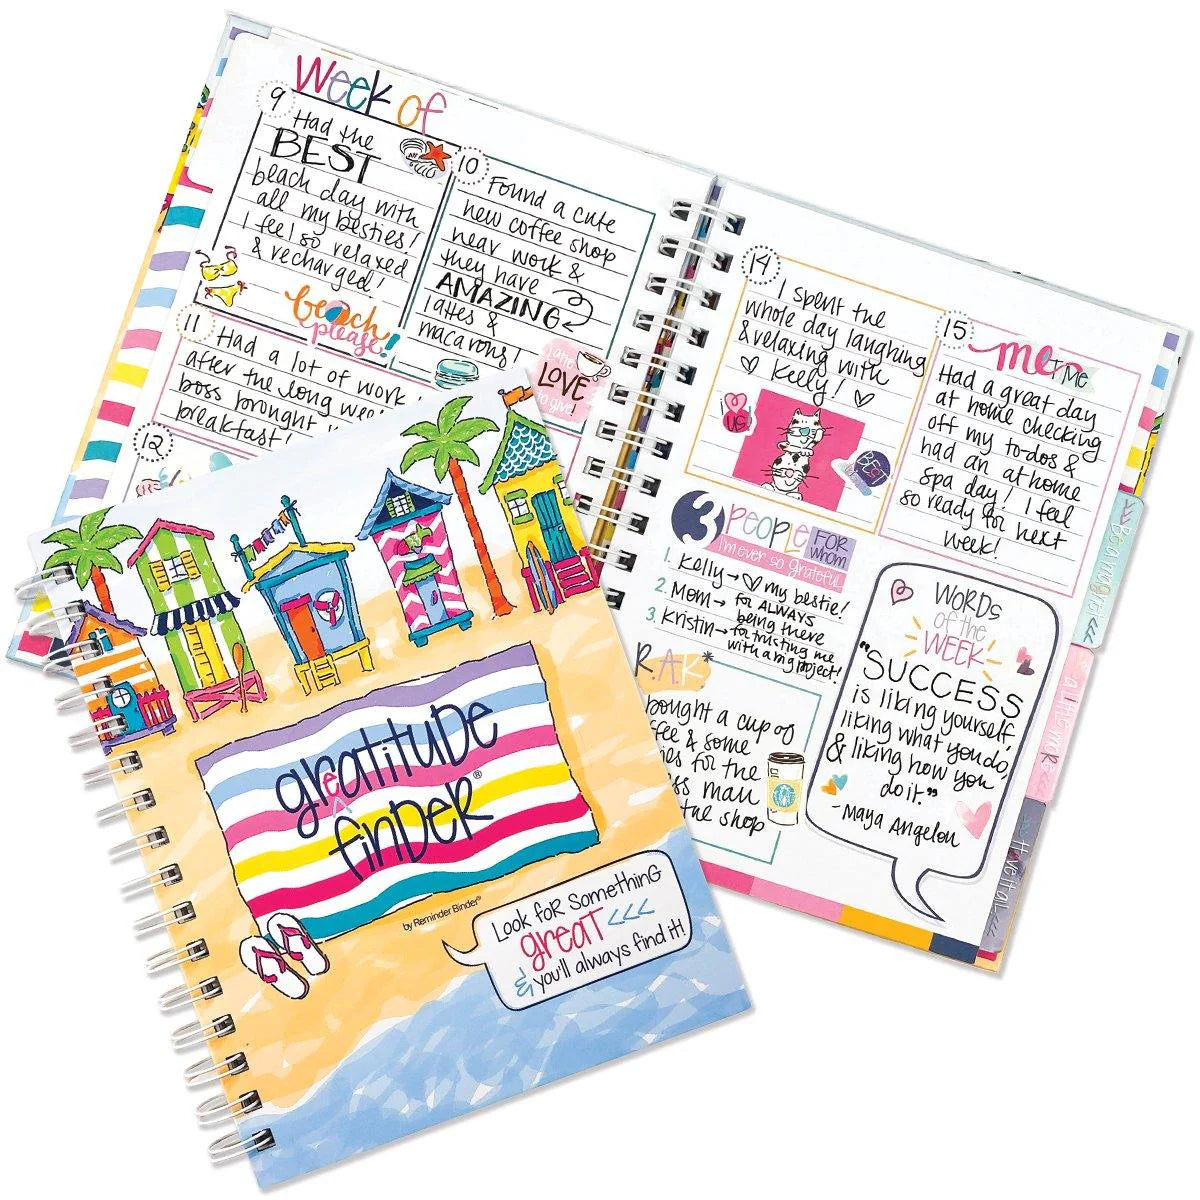 Week of
9
Had the
BEST
beach day with
all my besties!
I feel so relaxed
& recharged!
beach
please!
10
Found a cute
new coffee shop
near work &
they have
AMAZING
lattes &
macarons!
latte
LOVE
to give!
11
Had a lot of work
after the long
boss brought
breakfast!
12
14
I spent the
whole day laughing
& relaxing with
Kelly!
US!
BEST
15
me TIME
Had a great day
at home checking
off my to-dos &
had an at home
spa day! I feel
so ready for next
week!
3 PEOPLE FOR WHOM
I'm ever so grateful
1. Kelly → ♡ my bestie!
2. Mom → for ALWAYS
being there
3. Kristin → for trusting me
with a big project!
R.A.K*
bought a cup of
& some
for the
man
the shop
WORDS
of the
WEEK
"SUCCESS
is liking yourself,
liking what you do,
& liking how you
do it."
-Maya Angelou
a little more
greatitude
finder®
by Reminder Binder®
Look for something
great <<<
& you'll always find it!